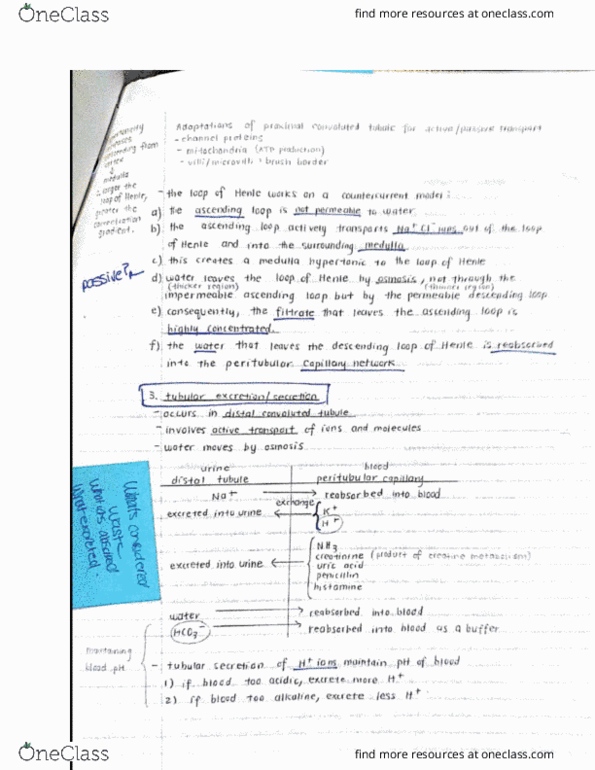 OneClass
find more resources at oneclass.com
Adaptations of proximal convoluted tubule for active/passive transport
- channel proteins
- mitochondria (ATP production)
- villi/microvilli → brush border
descending from
medulla
larger the
loop of Henle,
greater the
concentration
gradient.
- the loop of Henle works on a countercurrent model:
a) the ascending loop is not permeable to water
b) the ascending loop actively transports Na+ Cl- ions out of the loop
of Henle and into the surrounding medulla
c) this creates a medulla hypertonic to the loop of Henle
passive?
d) water leaves the loop of Henle by osmosis, not through the
(thicker region) (thinner region)
impermeable ascending loop but by the permeable descending loop
e) consequently, the filtrate that leaves the ascending loop is
highly concentrated.
f) the water that leaves the descending loop of Henle is reabsorbed
into the peritubular capillary network
3. tubular excretion/secretion
- occurs in distal convoluted tubule
- involves active transport of ions and molecules
- water moves by osmosis
urine blood
distal tubule peritubular capillary
Na+ → reabsorbed into blood
exchange
excreted into urine ← K+
H+
NH3
creatinine (product of creatine metabolism)
excreted into urine ← uric acid
penicillin
histamine
water → reabsorbed into blood
HCO3- → reabsorbed into blood as a buffer
What's considered
waste
What gets absorbed
What excreted.
maintaining
blood pH
- tubular secretion of H+ ions maintain pH of blood
1) if blood too acidic, excrete more H+
2) if blood too alkaline, excrete less H+
OneClass
find more resources at oneclass.com